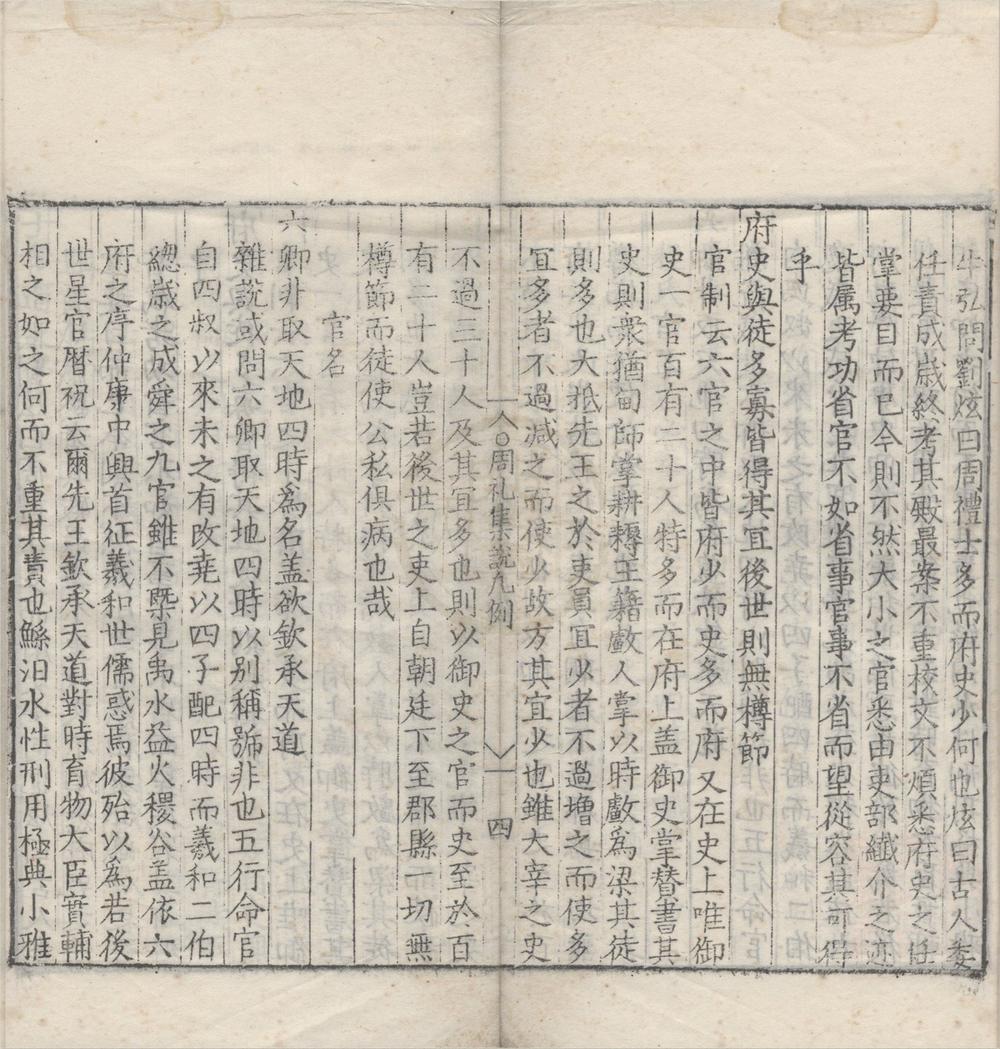 牛弘問劉炫曰周禮士多而府史少何也炫曰古人委
任責成歲終考其殿最案不重校文不煩悉府史之任
掌要目而已今則不然大小之官悉由吏部纖介之迹
皆属考功省官不如省事官事不省而望從容其可得
乎
府史與徒多寡皆得其宜後世則無樽節
官制云六官之中皆府少而史多而府又在史上唯御
史一官百有二十人特多而在府上盖御史掌賛書其
史則衆猶甸師掌耕耨王籍䱷人掌以時䱷爲梁其徒
則多也大抵先王之於吏員冝少者不過增之而使多
冝多者不過减之而使少故方其宜少也雖大宰之史
八○周礼集說凡例 四
不過三十人及其宜多也則以御史之官而史至於百
有二十人豈若後世之吏上自朝廷下至郡縣一切無
樽節而徒使公私俱病也哉
官名
六卿非取天地四時爲名盖欲欽承天道
雜說或問六卿取天地四時以别稱號非也五行命官
自四叔以來未之有改堯以四子配四時而羲和二伯
總歲之成舜之九官雖不槩見禹水益火稷谷盖依六
府之序仲康中興首征羲和世儒惑焉彼殆以爲若後
世星官暦祝云爾先王欽承天道對時育物大臣實輔
相之如之何而不重其責也鯀汩水性刑用極典小雅